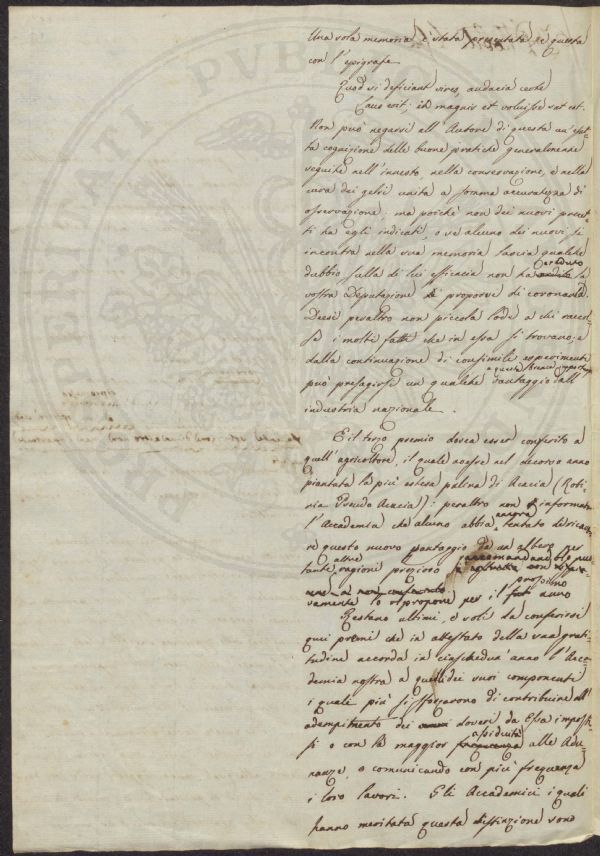 Una sola memoria è stata presentata, è questa
con l'epigrafe
Quod si deficiant vires, audacia certe
Laus erit; in magnis et voluisse sat est.
Non può negarsi all'Autore di questa un'esat-
ta cognizione delle buone pratiche generalmente
seguite nell'innesto, nella conservazione, e nella
cura dei gelsi unita a somma accuratezza di
osservazione; ma poichè non dei nuovi precet-
ti ha egli indicati, o se alcuno dei nuovi si
incontra nella sua memoria lascia qualche
dubbio sulla di lui efficacia non ha creduto la
vostra Deputazione di proporvi di coronarla.
Deesi peraltro non piccola lode a chi raccol-
se i molti fatti che in essa si trovano, e
dalla continuazione di consimili esperimenti
può presagirsi un qualche vantaggio all'
a questo ramo importante
industria nazionale.
E il terzo premio dovea esser conferito a
quell'agricoltore, il quale avesse nel decorso anno
piantata la più estesa palina di Acacia (Robi-
nia Pseudo Acacia): peraltro non è informata
l'Academia che alcuno abbia ancora tentato di ricava-
re questo nuovo vantaggio da un albero per
tante altre ragioni prezioso raccomandandolo nuo-
vamente lo ripropone per il prossimo anno
Restano ultimi, e soli da conferirsi
quei premi che in attestato della sua grati-
tudine accorda in ciaschedun'anno l'Acca-
demia nostra a quelli dei suoi componenti
i quali più si sforzarono di contribuire all'
adempimento dei doveri da Essa impos-
ti o con la maggior assiduità alle Adu-
nanze, o comunicando con più frequenza
i loro lavori. Gli Accademici i quali
hanno meritata questa distinzione sono